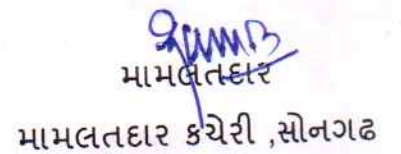 મામલતદાર
મામલતદાર કચેરી ,સોનગઢ